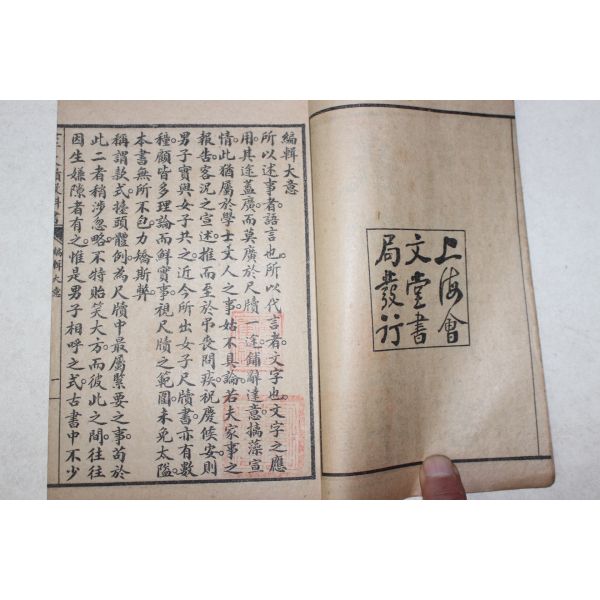 上海會
文堂書
局發行
編輯大意
所以述事者語言也所以代言者文字也文字之應
用其途蓋廣而莫廣於尺牘一途鋪辭達意摛藻宣
情此猶屬於學士文人之事姑不具論若夫家事之
報告客況之宣述推而至於弔喪問疾祝慶候安則
男子實與女子共之近今所出女子尺牘書亦有數
種顧皆多理論而鮮實事視尺牘之範圍未免太隘
本書無所不包力矯斯弊
稱謂款式擡頭體例為尺牘中最屬緊要之事苟於
此二者稍涉忽略不特貽笑大方而彼此之間往往
因生嫌隙者有之惟是男子相呼之式古書中不少
編輯大意
一